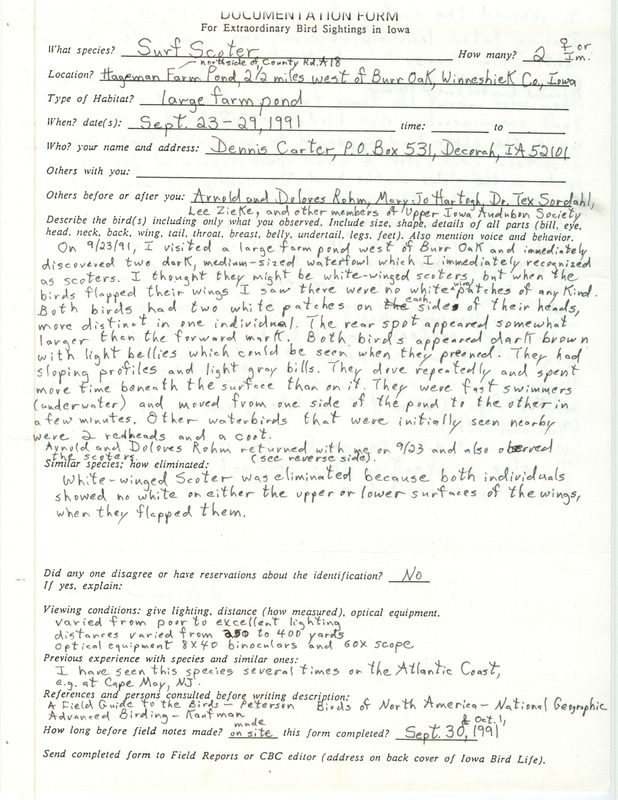 DOCUMENTATION FORM
For Extraordinary Bird Sightings in Iowa
What species? Surf Scoter How many? 2 ♀ or Im.
northside of County Rd. A18
Location? Hageman Farm Pond, 2 1/2 miles west of Burr Oak, Winneshiek Co., Iowa
Type of Habitat? large farm pond
When? date(s): Sept. 23-29, 1991 time: to
Who? your name and address: Dennis Carter, P.O. Box 531, Decorah, IA 52101
Others with you:
Others before or after you: Arnold and Doloves Rohm, Mary Jo Hartogh, Dr. Tex Sordahl,
Lee Zieke, and other members of Upper Iowa Audubon Society
Describe the bird(s) including only what you observed. Include size, shape, details of all parts (bill, eye,
head, neck, back, wing, tail, throat, breast, belly, undertail, legs, feet). Also mention voice and behavior.
On 9/23/91, I visited a large farm pond west of Burr Oak and immediately
discovered two dark, medium-sized waterfowl which I immediately recognized
as scoters. I thought they might be white-winged scoters, but when the
birds flapped their wings I saw there were no white wing patches of any kind.
Both birds had two white patches on the each sides of their heads,
more distinct in one individual. The rear spot appeared somewhat
larger then the forward mark. Both birds appeared dark brown
with light bellies which could be seen when they preened. They had
sloping profiles and light gray bills. They dove repeatedly and spent
more time beneath the surface than on it. They were fast swimmers
(underwater) and moved from one side of the pond to the other in
a few minutes. Other waterbirds that were initially seen nearby
were 2 redheads and a coot.
Arnold and Doloves Rohm returned with me on 9/23 and also observed
the scoters. (see reverse side).
Similar species; how eliminated:
White-winged Scoter was eliminated because both individuals
showed no white on either the upper or lower surfaces of the wings,
when they flapped them.
Did any one disagree or have reservations about the identification? No
If yes, explain:
Viewing conditions: give lighting, distance (how measured), optical equipment.
varied from poor to excellent lighting
distances varied from 350 to 400 yards
optical equipment 8X40 binoculars and 60X scope
Previous experience with species and similar ones:
I have seen this species several times on the Atlantic Coast,
e.g. at Cape May, NJ.
References and persons consulted before writing description:
A Field Guide to the Birds - Peterson Birds of North America - National Geographic
Advanced Birding - Kaufman
made & Oct. 1,
How long before field notes made? on site this form completed? Sept. 30, 1991
Send completed form to Field Reports or CBC editor (address on back cover of Iowa Bird Life).